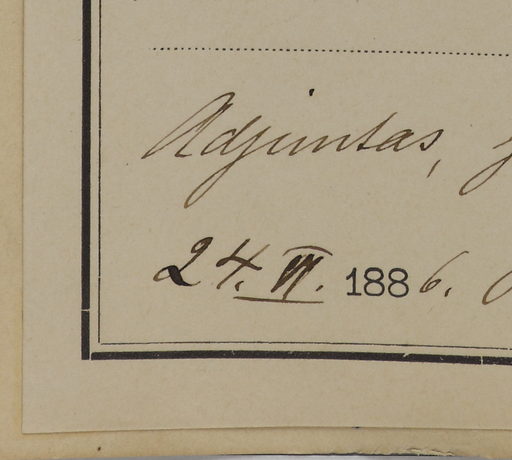 Adjuntas,
24. VI. 1886.